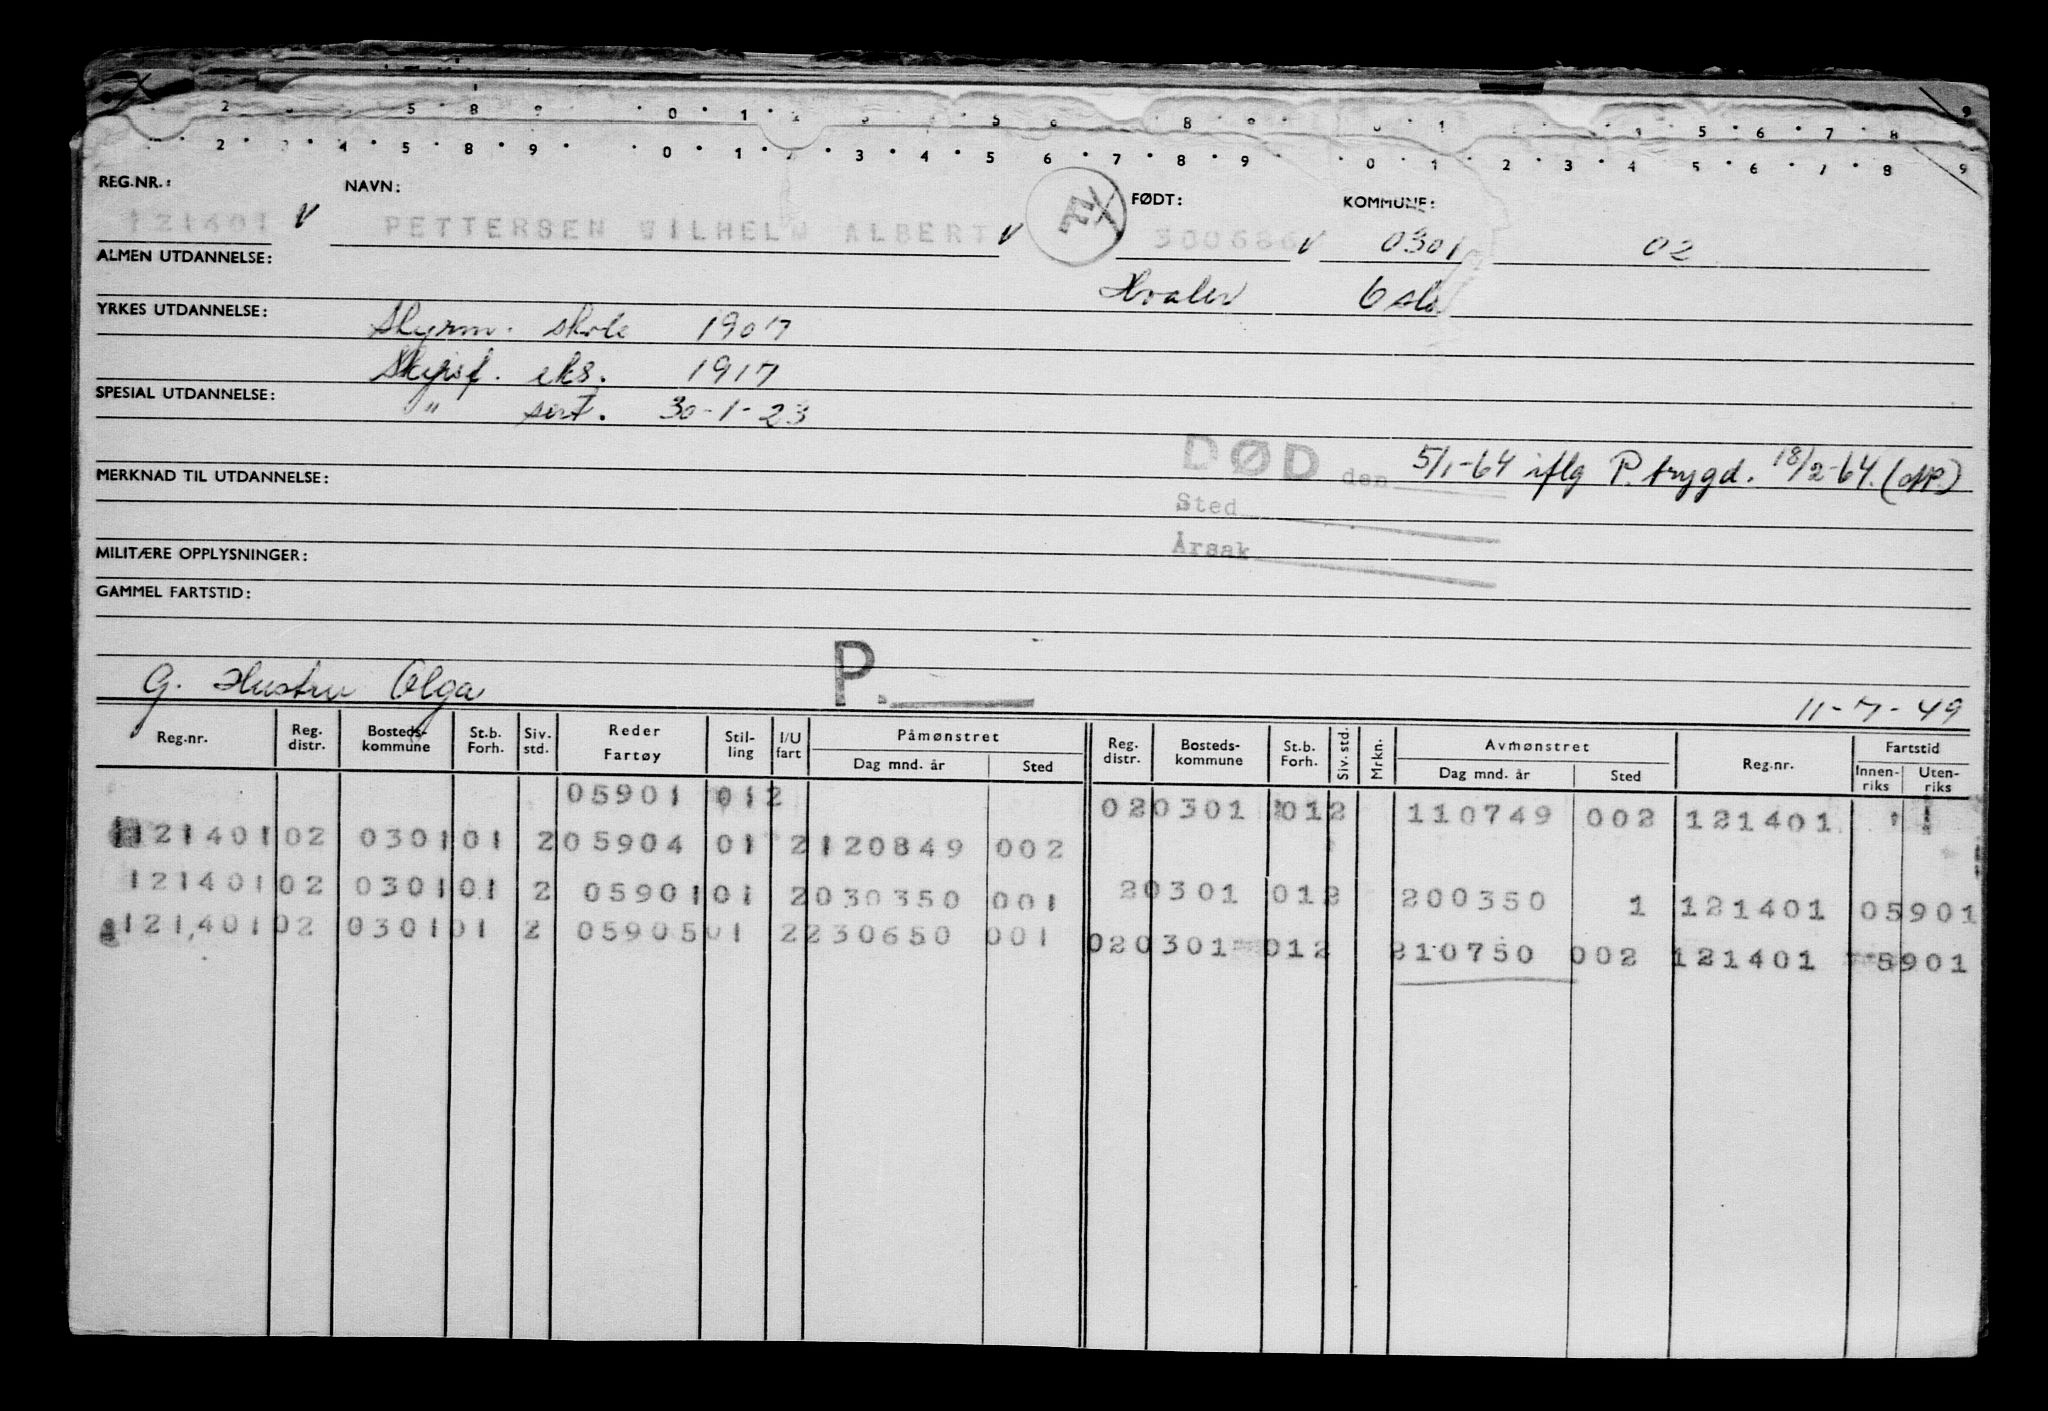 2 5 8 9 0 1 2 3 5 6 8 9 0 1 4 5 6 7 8 9
2 3 4 5 8 9 0 1 2 3 4 5 6 7 8 9 0 1 2 3 4 5 6 7 8 9
REG.NR.: NAVN: FØDT: KOMMUNE:
121401 PETTERSEN WILHELM ALBERT 300686 0301 02
ALMEN UTDANNELSE: Hvaler Oslo
YRKES UTDANNELSE: Styrm. skole 1907
Skipsf. eks. 1917
SPESIAL UTDANNELSE: " sert. 30-1-23
DØD den 5/1-64 iflg P. trygd. 18/2-64.
MERKNAD TIL UTDANNELSE:
Sted
Årsak
MILITÆRE OPPLYSNINGER:
GAMMEL FARTSTID:
P.
G. Hustru Olga 11-7-49
Reg.nr. Reg. distr. Bosteds-kommune St.b. Forh. Siv. std. Reder Fartøy Stil-ling I/U fart Påmønstret Dag mnd. år Sted Reg. distr. Bosteds-kommune St.b. Forh. Siv. std. Mrkn. Avmønstret Dag mnd. år Sted Reg.nr. Fartstid Innen-riks Uten-riks
05901 012 020301 012 110749 002 121401
121401 02 0301 01 2 05904 01 2 120849 002
121401 02 0301 01 2 05901 01 2 030350 001 20301 012 200350 1 121401 05901
121401 02 0301 01 2 05905 01 2 230650 001 020301 012 210750 002 121401 5901